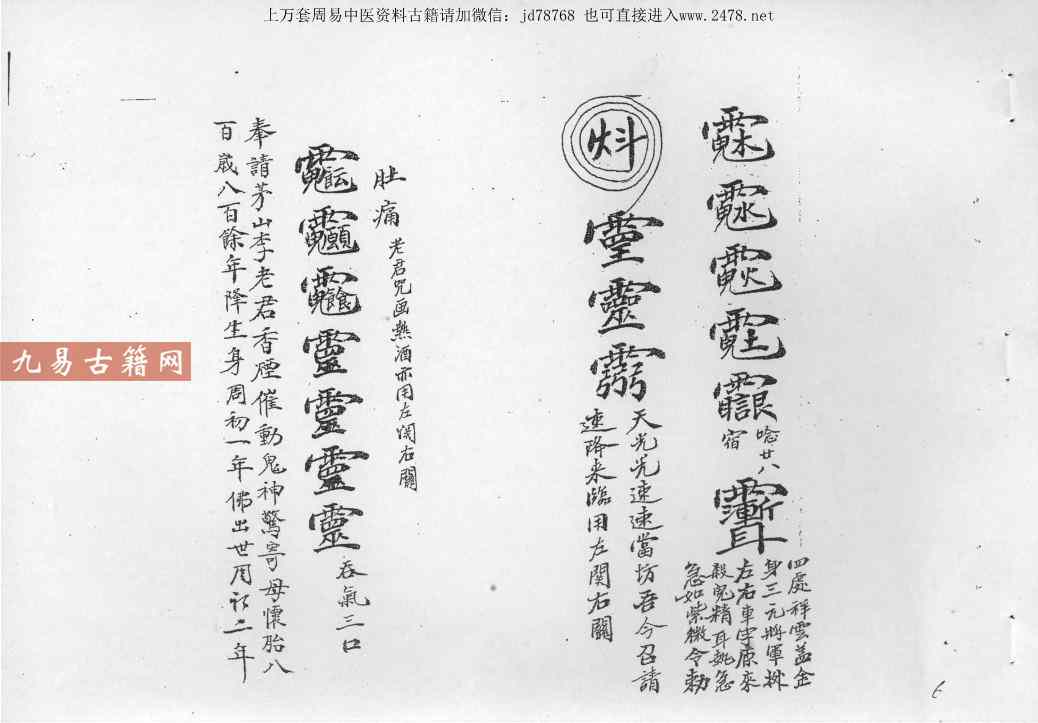 上万套周易中医资料古籍请加微信：jd78768 也可直接进入www.2478.net
唸廿八
宿
四處祥雲蓋金
身三元將軍排
左右車字原來
殺鬼精耳急
急如紫微令勅
天光光速速當坊吾今召請
速降来臨用左関右關
靈
肚痛
老君咒画熱酒亦用左関右關
靈
靈
靈
靈
吞氣三口
奉請茅山李老君香煙催動鬼神驚寄母懷胎八
百歲八百餘年降生身周初一年佛出世周初二年
九易古籍网